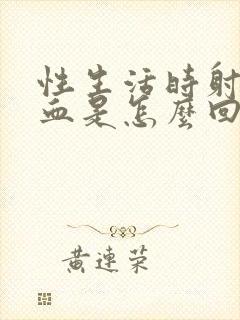 性生活時射
血是怎麼回
黃連荣